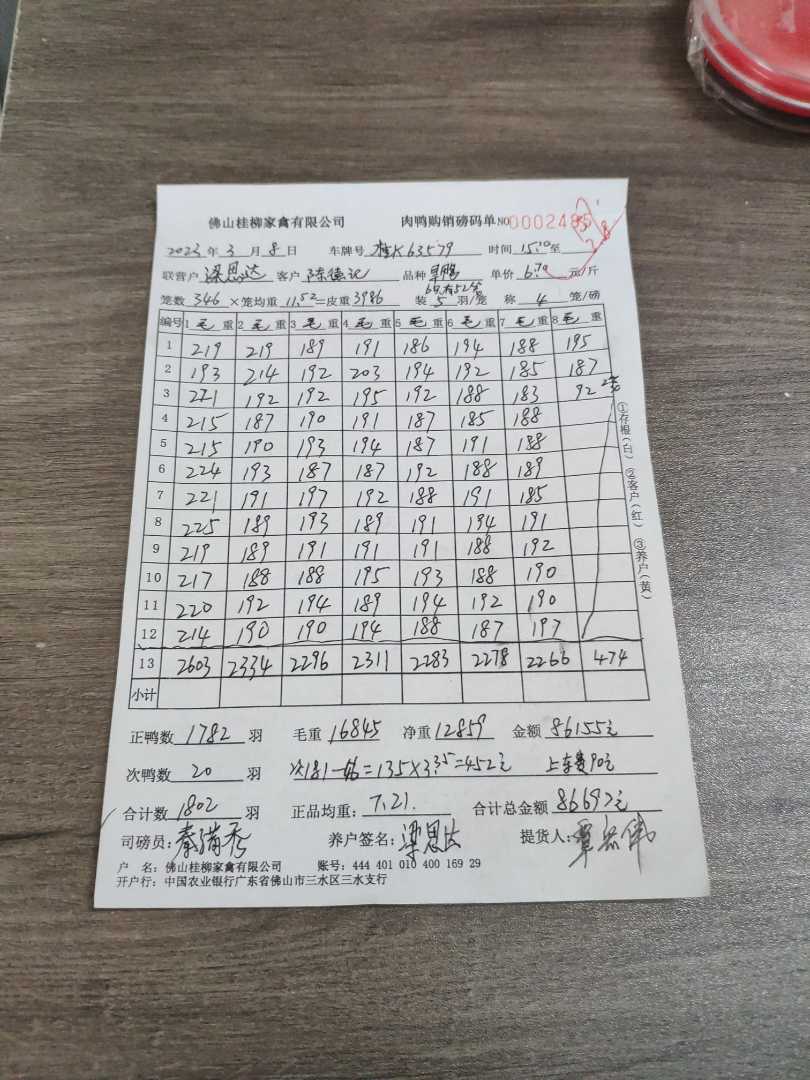 佛山桂柳家禽有限公司 肉鸭购销磅码单 NO 0002485
28
2023年3月8日 车牌号 桂K63579 时间 15:10至
联营户 梁思达 客户 陈德记 品种 旱鸭 单价 6.70 元/斤
笼数 346 ×笼均重 11.52 =皮重 3986 装 5 羽/笼 称 4 笼/磅
编号 1毛重 2毛重 3毛重 4毛重 5毛重 6毛重 7毛重 8毛重
1 219 219 189 191 186 194 188 195
2 193 214 192 203 194 192 185 187
3 221 192 192 195 192 188 183 92 2笼
4 215 187 190 191 187 185 188
5 215 190 193 194 187 191 188
6 224 193 187 187 192 188 189
7 221 191 197 192 188 191 185
8 225 189 193 189 191 194 191
9 219 189 191 191 191 188 192
10 217 188 188 195 193 188 190
11 220 192 194 189 194 192 190
12 214 190 190 194 188 187 197
13 2603 2334 2296 2311 2283 2278 2266 474
小计
①存根(白) ②客户(红) ③养户(黄)
正鸭数 1782 羽 毛重 16845 净重 12859 金额 86155元
次鸭数 20 羽 次181-46=135×3.35=452元 上车费90元
合计数 1802 羽 正品均重: 7.21. 合计总金额 86697元
司磅员: 秦满秀 养户签名: 梁思达 提货人: 覃
户 名: 佛山桂柳家禽有限公司 账号: 444 401 010 400 169 29
开户行: 中国农业银行广东省佛山市三水区三水支行